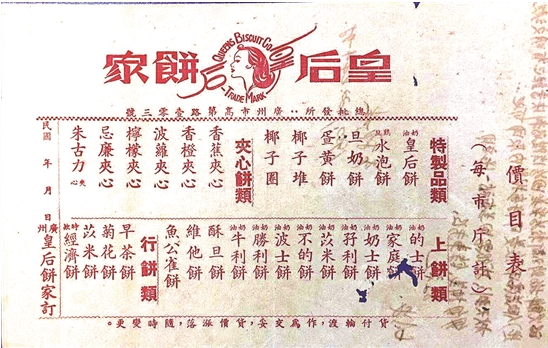 皇后餅家
QUEENS BISCUIT CO
TRADE MARK
總批發所：廣州市高第路壹零三號
價目表
（每市斤計）
特製品類
奶油皇后餅
水泡餅
旦奶餅
蛋黃餅
椰子堆
椰子圈
夾心餅類
香蕉夾心
香橙夾心
波蘿夾心
檸檬夾心
忌廉夾心
朱古力夾心
上餅類
奶油的士餅
奶油家庭餅
奶油奶士餅
奶油孖利餅
奶油苡米餅
奶油不的餅
奶油波士餅
奶油勝利餅
奶油牛利餅
酥旦餅
維他餅
魚公雀餅
行餅類
早茶餅
菊花餅
苡米餅
時款經濟餅
民國 年 月 日
廣州皇后餅家訂
貨付輪渡，作為交妥，貨價漲落，隨時變更。